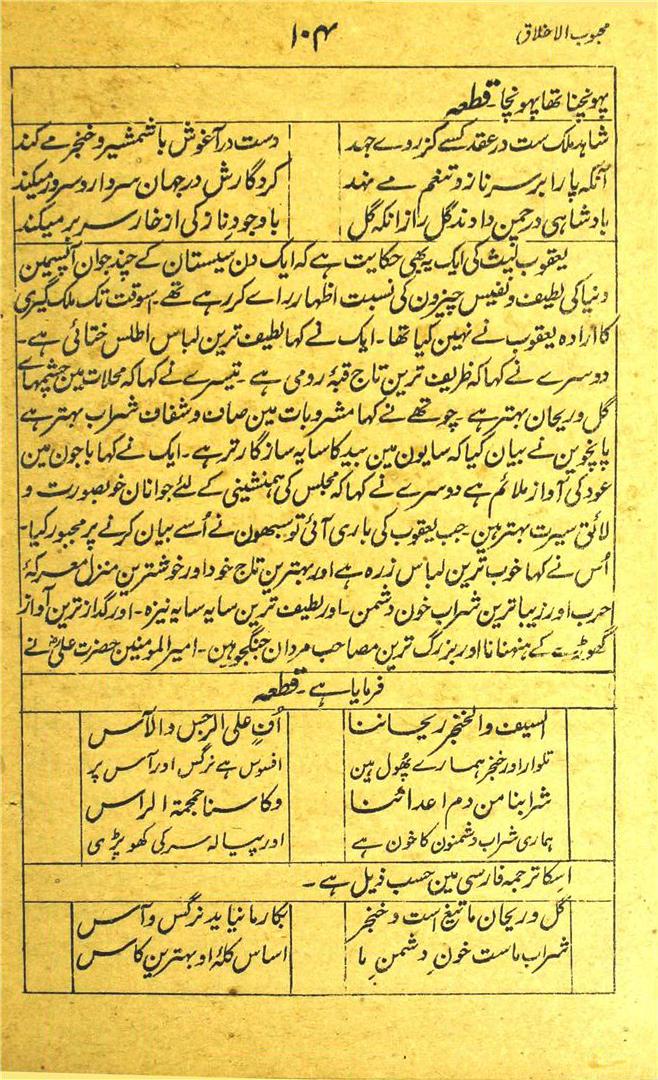 محبوب الاخلاق
۱۰۴
پہونچنا تھا پہونچا۔ قطعہ
شاہد ملک ست در عقد کسے کز روے جہد دست در آغوش با شمشیر و خنجر مے کند
آنکہ پا را بر سر ناز و تنعم مے نہد کردگارش در جہان سردار و سرور میکند
بادشاہی در چمن دادند گل را زانکہ گل باوجودِ نازکی از خار سر بر میکند
یعقوب لیث کی ایک یہ بھی حکایت ہے کہ ایک دن سیستان کے چند جوان آپسمین
دنیا کی لطیف و نفیس چیزون کی نسبت اظہار راے کر رہے تھے۔ اسوقت تک ملک گیری
کا ارادہ یعقوب نے نہین کیا تھا۔ ایک نے کہا لطیف ترین لباس اطلس ختائی ہے۔
دوسرے نے کہا کہ ظریف ترین تاج قبۂ رومی ہے۔ تیسرے نے کہا کہ محلات مین چشمہاے
گل و ریحان بہتر ہے۔ چوتھے نے کہا مشروبات مین صاف و شفاف شراب بہتر ہے
پانچوین نے بیان کیا کہ سایون مین بید کا سایہ سازگار تر ہے۔ ایک نے کہا باجون مین
عود کی آواز ملائم ہے دوسرے نے کہا کہ مجلس کی ہمنشینی کے لئے جوانان خوبصورت و
لائق سیرت بہتر ہین۔ جب یعقوب کی باری آئی تو سبھون نے اُسے بیان کرنے پر مجبور کیا۔
اُس نے کہا خوب ترین لباس زرہ ہے اور بہترین تاج خود اور خوشترین منزل معرکۂ
حرب اور زیبا ترین شراب خون دشمن۔ اور لطیف ترین سایہ سایہ نیزہ۔ اور گداز ترین آواز
گھوڑے کے ہنہنانا اور بزرگ ترین مصاحب مردان جنگجو ہین۔ امیر المومنین حضرت علی نے
فرمایا ہے۔ قطعہ
السیف والخنجر ریحاننا اُفٍ علی النرجس والآس
تلوار اور خنجر ہمارے پھول ہین افسوس ہے نرگس اور آس پر
شرابنا من دم اعدائنا وکاسنا جمجمۃ الراس
ہماری شراب دشمنون کا خون ہے اور پیالہ سر کی کھوپڑی
اسکا ترجمہ فارسی مین حسب ذیل ہے۔
گل و ریحان ما تیغ است و خنجر بکار ما نیاید نرگس و آس
شراب ماست خونِ دشمنِ ما اساس کلۂ او بہترین کاس